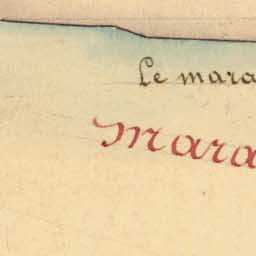 Le mara
Mara